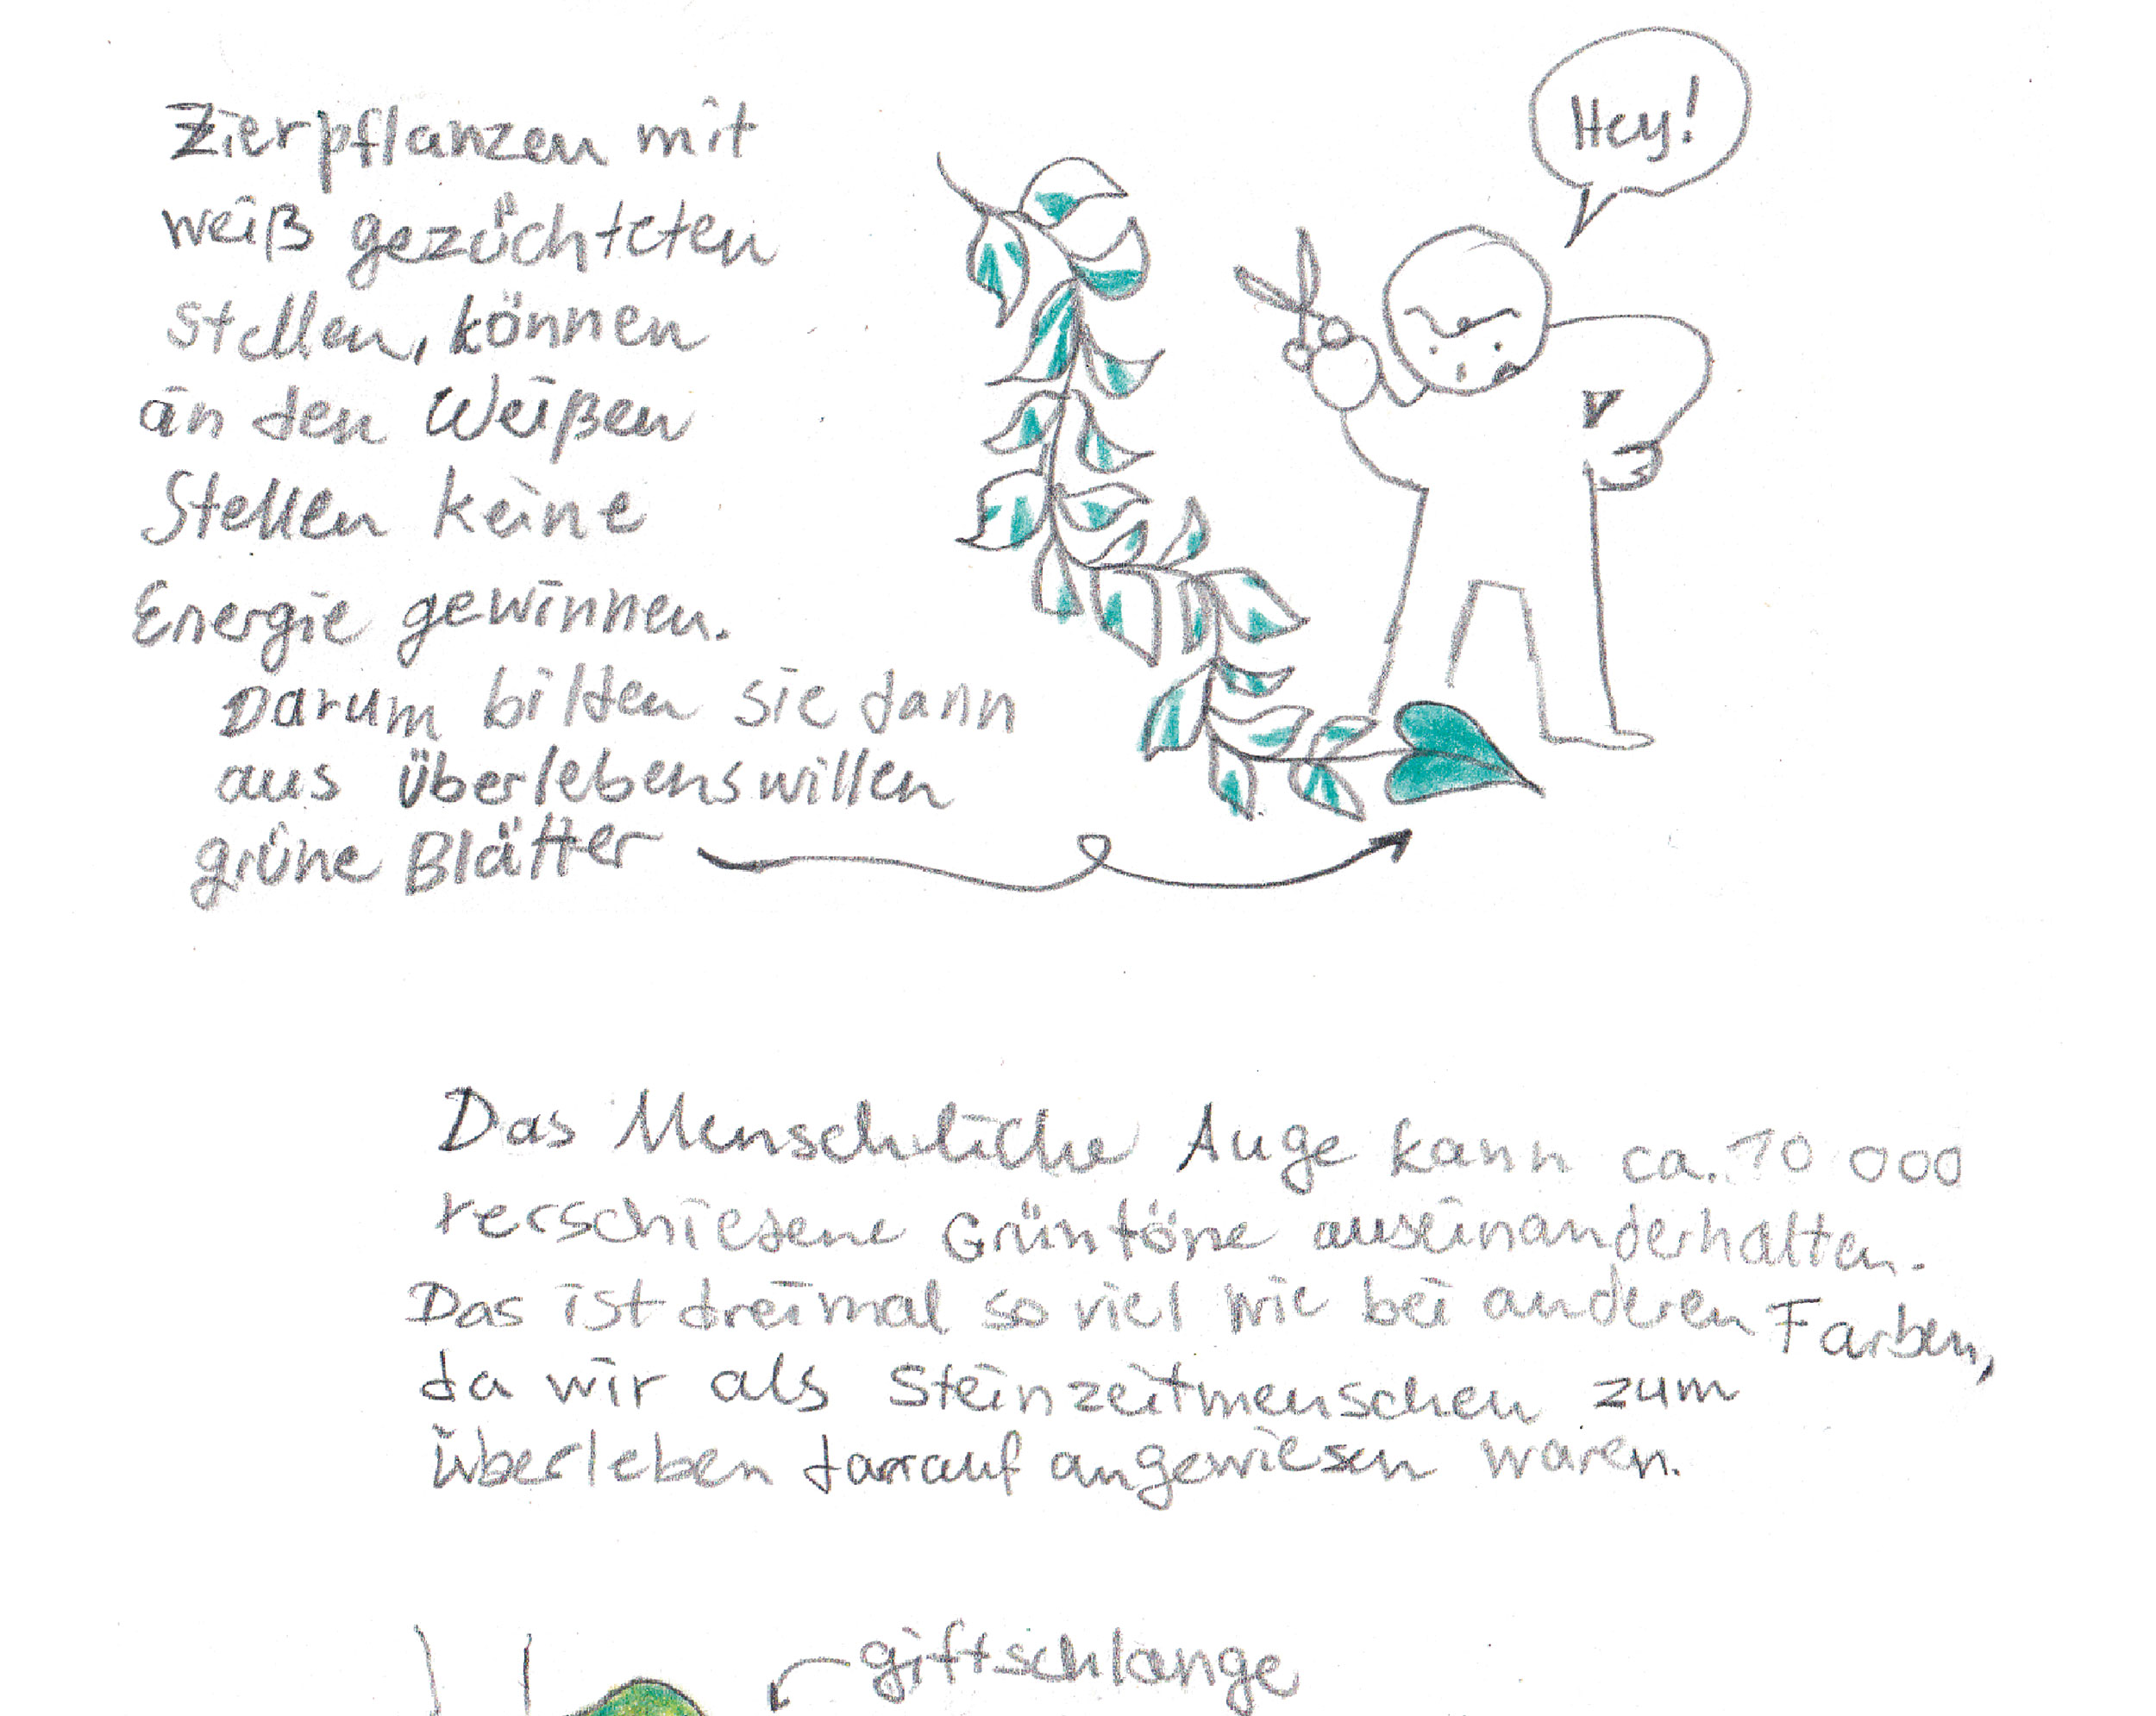 Hey!
Zierpflanzen mit
weiß gezüchteten
stellen, können
an den Weißen
Stellen keine
Energie gewinnen.
Darum bilden sie dann
aus überlebenswillen
grüne Blätter
Das Menschliche Auge kann ca. 10 000
verschiedene Grüntöne auseinanderhalten.
Das ist dreimal so viel wie bei anderen Farben,
da wir als Steinzeitmenschen zum
überleben darauf angewiesen waren.
giftschlange